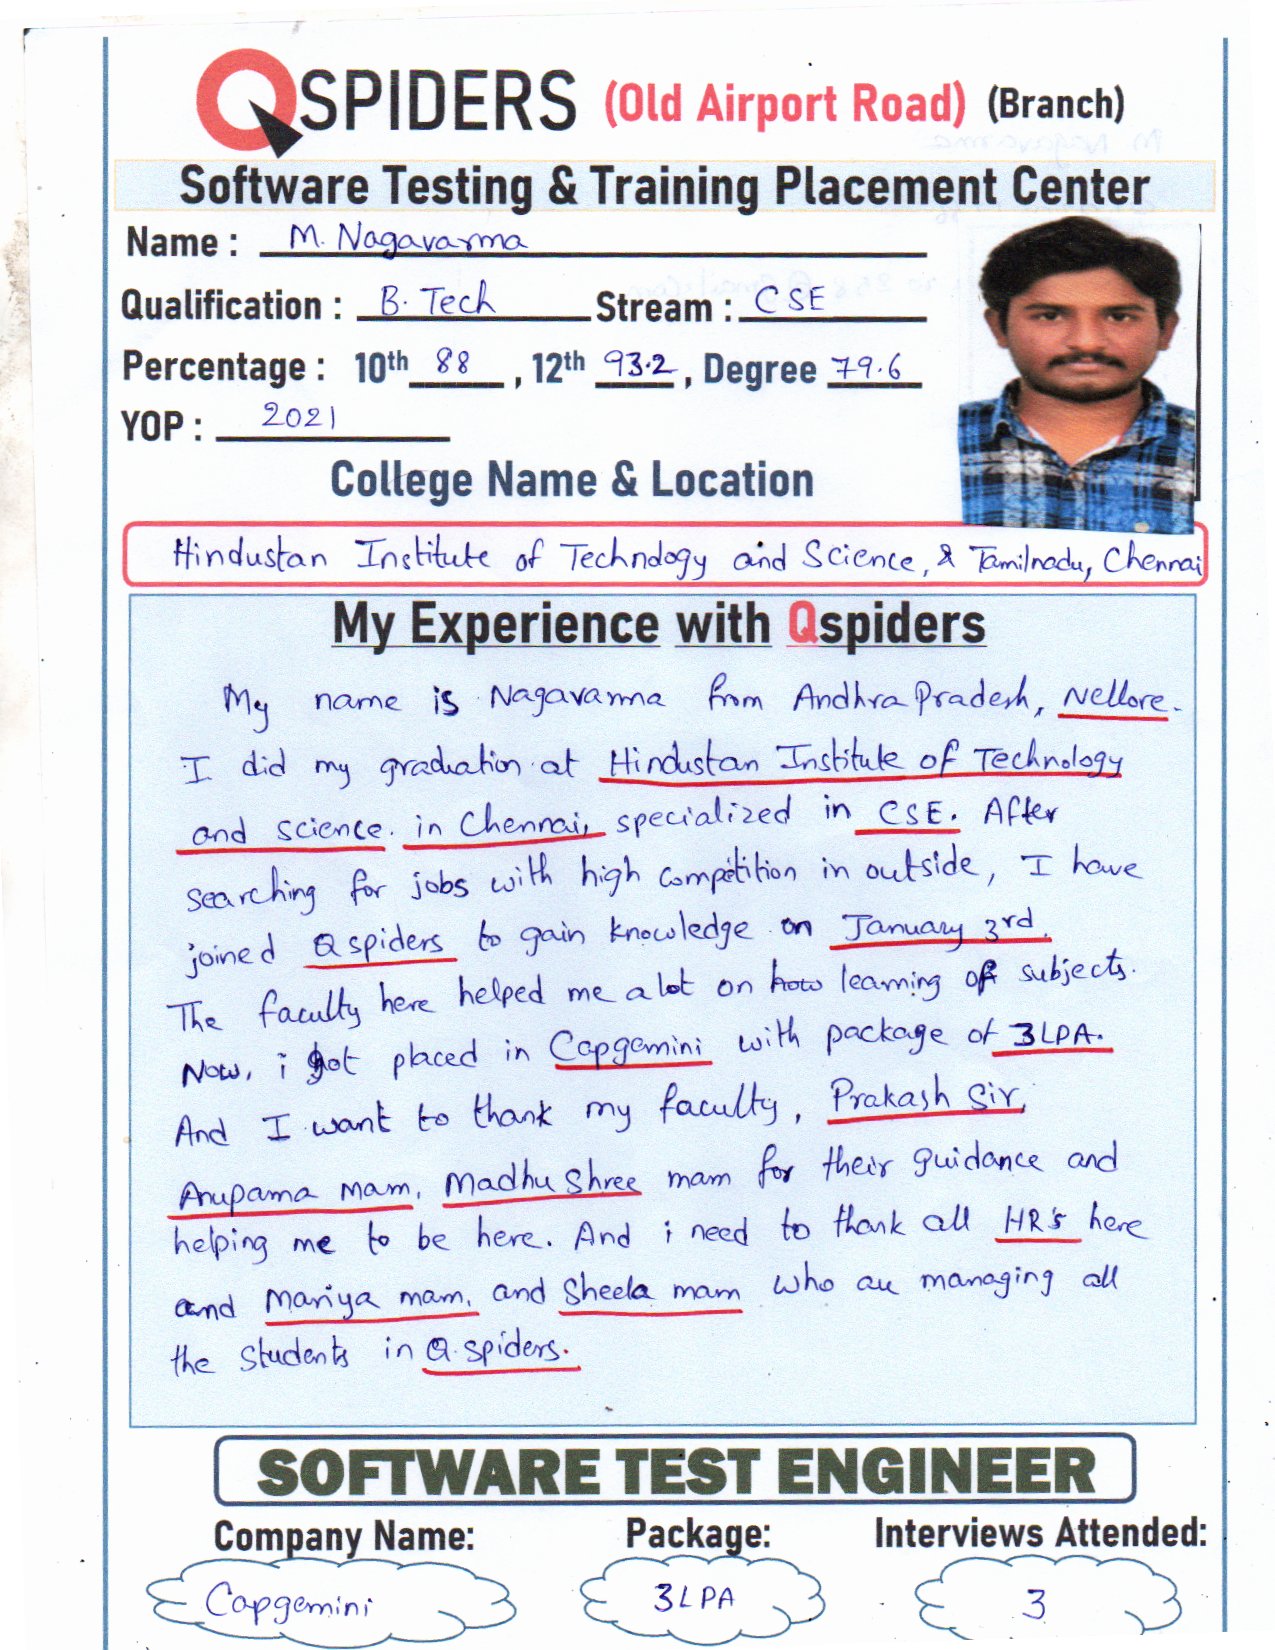 QSPIDERS (Old Airport Road) (Branch)
Software Testing & Training Placement Center
Name : M. Nagavarma
Qualification : B. Tech Stream : CSE
Percentage : 10th 88 , 12th 93.2 , Degree 79.6
YOP : 2021
College Name & Location
Hindustan Institute of Technology and Science, & Tamilnadu, Chennai
My Experience with Qspiders
My name is Nagavarma from Andhra Pradesh, Nellore.
I did my graduation at Hindustan Institute of Technology
and science. in Chennai, specialized in CSE. After
searching for jobs with high competition in outside, I have
joined Qspiders to gain knowledge on January 3rd.
The faculty here helped me a lot on how learning of subjects.
Now, i got placed in Capgemini with package of 3LPA.
And I want to thank my faculty, Prakash Sir,
Anupama Mam, Madhu Shree mam for their guidance and
helping me to be here. And i need to thank all HR's here
and Mariya mam, and Sheela mam who are managing all
the students in Q.spiders.
SOFTWARE TEST ENGINEER
Company Name: Package: Interviews Attended:
Capgemini 3LPA 3